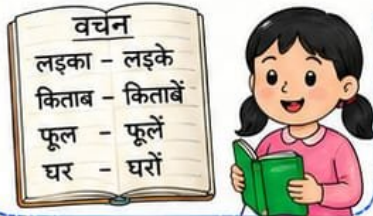 वचन
लड़का – लड़के
किताब – किताबें
फूल – फूलें
घर – घरों